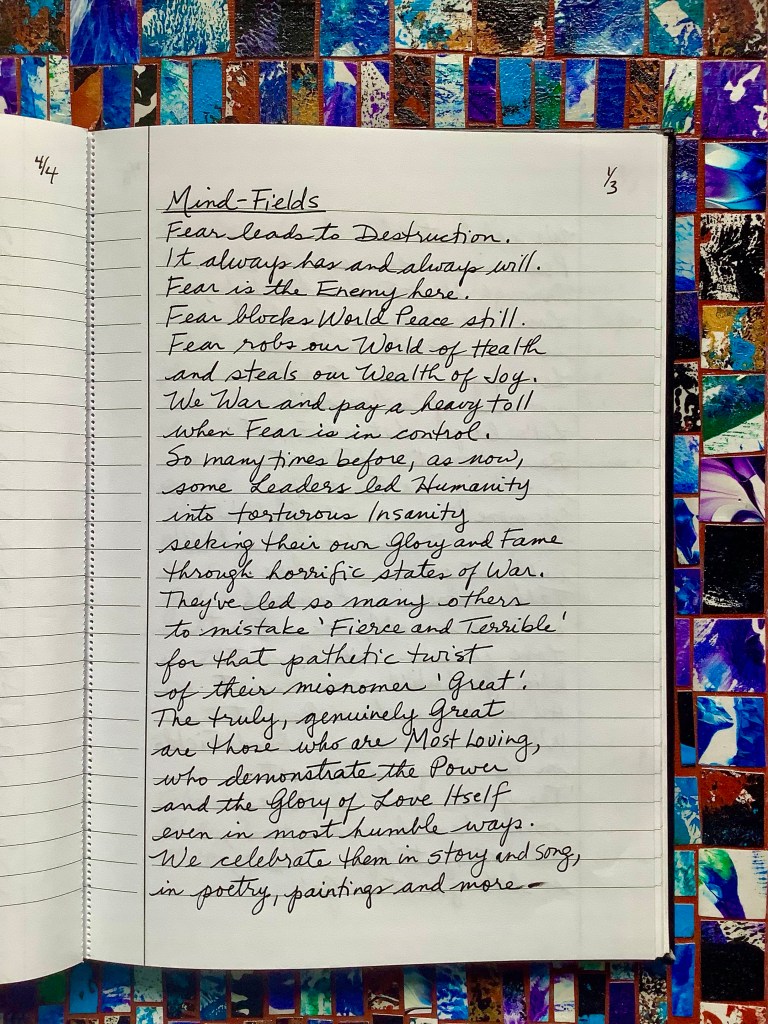 4/4
1/3
Mind-Fields
Fear leads to Destruction.
It always has and always will.
Fear is the Enemy here.
Fear blocks World Peace still.
Fear robs our World of Health
and steals our Wealth of Joy.
We War and pay a heavy toll
when Fear is in control.
So many times before, as now,
some Leaders led Humanity
into torturous Insanity
seeking their own Glory and Fame
through horrific states of War.
They've led so many others
to mistake 'Fierce and Terrible'
for that pathetic twist
of their misnomer 'Great'.
The truly, genuinely Great
are those who are Most Loving,
who demonstrate the Power
and the Glory of Love Itself
even in most humble ways.
We celebrate them in story and song,
in poetry, paintings and more –